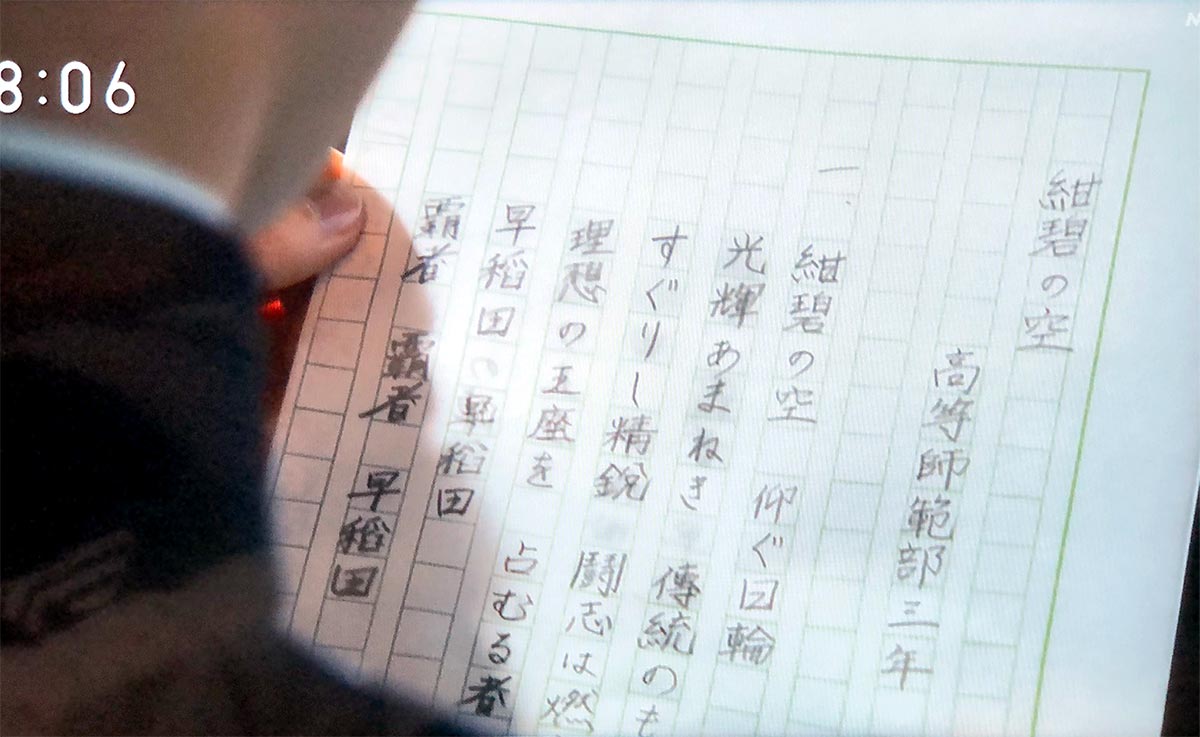 8:06
紺碧の空
高等師範部三年
一、紺碧の空 仰ぐ日輪
光輝あまねき 傳統のも
すぐりし精鋭 闘志は燃
理想の王座を 占むる者
早稲田 早稲田
覇者 覇者 早稲田